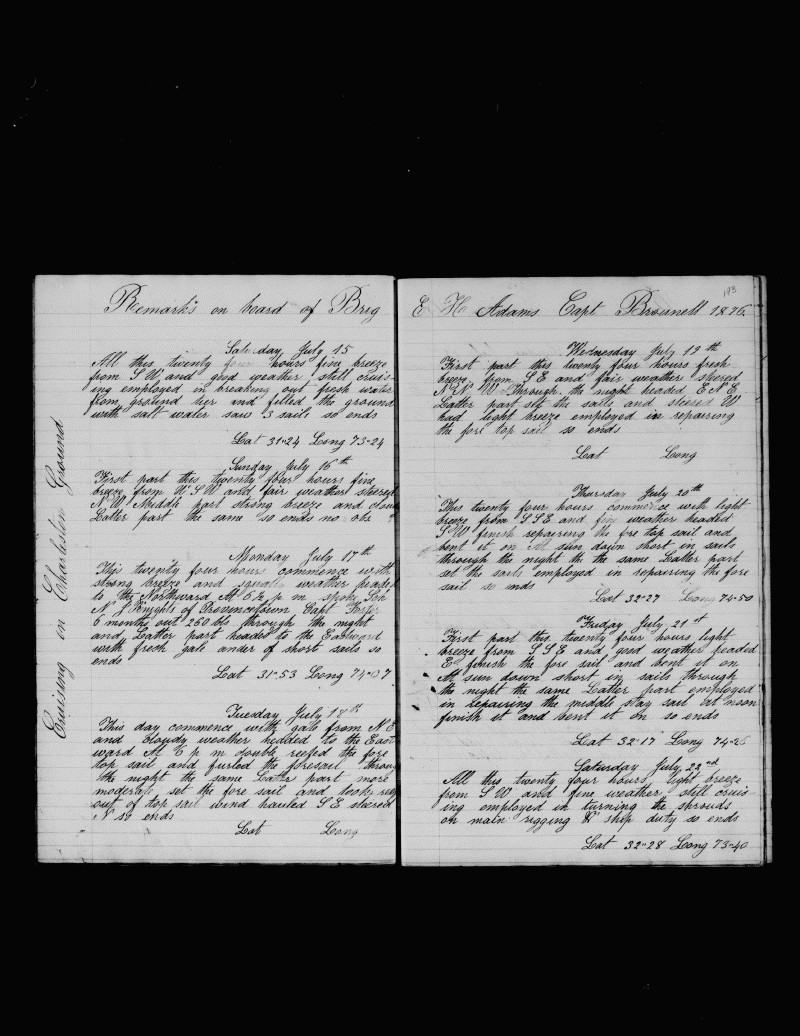 Remarks on board of Brig
Cruising on Charleston Ground
Saturday July 15
All this twenty four hours fine breeze
from S W and good weather still cruis-
ing employed in breaking out fresh water
from ground tier and filled the ground
with salt water saw 3 sails so ends
Lat 31"24 Long 73"24
Sunday July 16th
First part this twenty four hours fine
breeze from W S W and fair weather steered
N W Middle part strong breeze and cloudy
Latter part the same so ends no obs
Monday July 17th
This twenty four hours commence with
strong breeze and squally weather headed
to the Northward At 6½ p m spoke Sch
N J Knights of Provincetown Capt
6 months out 260 bls through the night
and Latter part headed to the Eastward
with fresh gale under of short sails so
ends
Lat 31"53 Long 74"07
Tuesday July 18th
This day commence with gale from N E
and cloudy weather hedded to the East
ward At 6 p m double reefed the fore
top sail and furled the foresail throug
the night the same Latter part more
moderate set the fore sail and took reef
out of top sail wind hauled S E steered
N so ends
Lat Long
193
E H Adams Capt Brownell 1876
Wednesday July 19th
First part this twenty four hours fresh
breeze from S E and fair weather steered
N N W Through the night headed E N E
Latter part set the sails and steered W
had light breeze employed in repairing
the fore top sail so ends
Lat Long
Thursday July 20th
This twenty four hours commence with light
breeze from S S E and fine weather headed
S W finish repairing the fore top sail and
bent it on At sun down short in sails
through the night the the same Latter part
set the sails employed in repairing the fore
sail so ends
Lat 32"27 Long 74"50
Friday July 21st
First part this twenty four hours light
breeze from S S E and good weather headed
E finish the fore sail and bent it on
At sun down short in sails through
the night the same Latter part employed
in repairing the middle stay sail at noon
finish it and bent it on so ends
Lat 32"17 Long 74"26
Saturday July 22nd
All this twenty four hours light breeze
from S W and fine weather still cruis
ing employed in turning the shrouds
on main rigging & ship duty so ends
Lat 32"28 Long 73"40